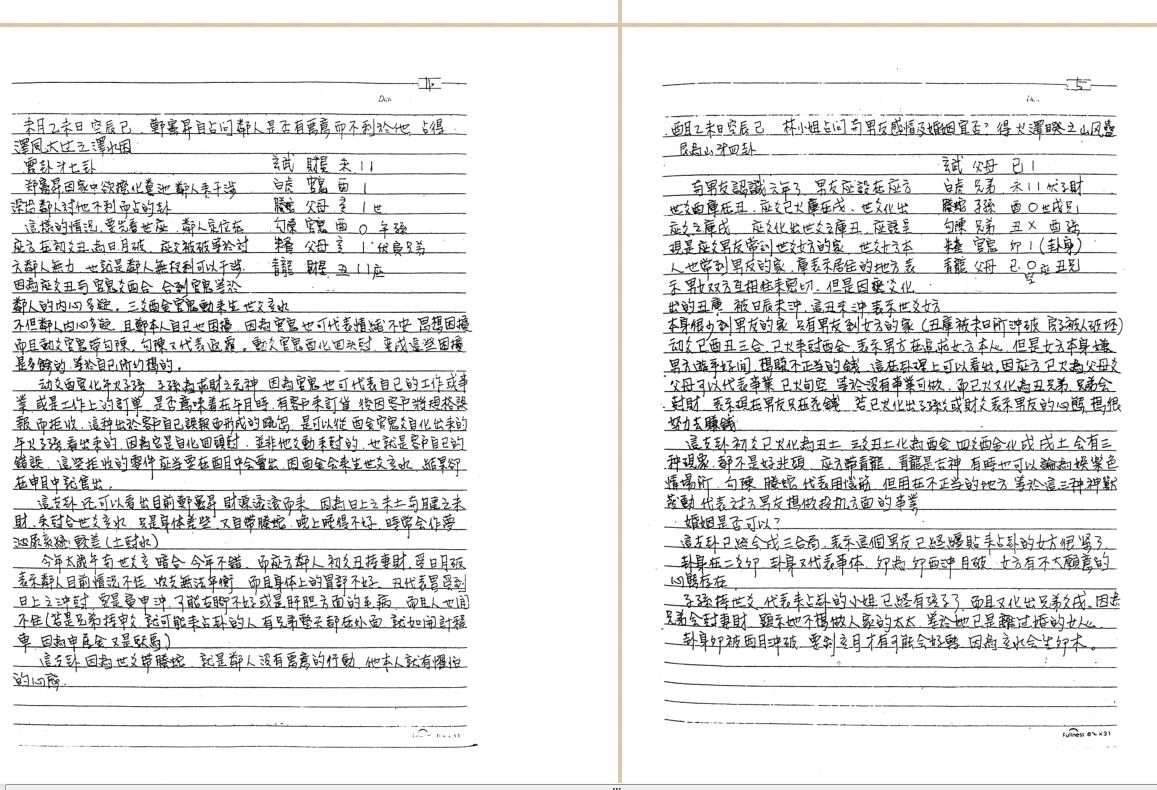 Date
未月乙未日空辰巳 鄭富昇自占问鄰人是否有惡意而不利於他 占得
澤風大过之澤水困
震卦才七卦
玄武 財星 未 11
鄭富昇因家中欲擴化糞池 鄰人来干涉
白虎 官鬼 酉 1
深恐鄰人对他不利而占的卦
螣蛇 父母 亥 1 世
這樣的情況 要先看世应 鄰人是位在
勾陳 官鬼 酉 0 午孫
应方 在初爻丑 為日月破 应爻被破等於对
朱雀 父母 亥 1 伏寅兄弟
方鄰人無力 也就是鄰人無权利可以干涉
青龍 財星 丑 11 应
因為应爻丑与官鬼爻酉合 合到官鬼等於
鄰人的内心多疑。三爻酉金官鬼動来生世爻亥水
不但鄰人内心多疑 且鄭本人自己也困擾 因為官鬼也可代表情緒不安 思想困擾
而且動爻官鬼帶勾陳, 勾陳又代表迟疑。動爻官鬼酉化回头尅 变成這些困擾
是多餘的 等於自己所幻想的。
动爻酉官化午火子孫 子孫為求財之元神 因為官鬼也可代表自己的工作或事
業 或是工作上的訂单 是否意味着在午月時 有客户来訂貨 後因客户將規格誤
報而拒收
這種出於客户自己誤報而形成的
是可以從酉金官鬼爻自化出来的
午火子孫看出来的, 因為它是自化回頭尅 並非他爻動来尅的, 也就是客户自己的
錯誤 這些拒收的零件应当要在酉月中会賣出 因酉金会来生世爻亥水 結果卻
在申月中就售出。
這支卦还可以看出目前鄭富昇財源滾滾而来 因為日上之未土与月建之未
財, 来尅合世爻亥水 只是身体差些 又自帶螣蛇 晚上睡得不好 時常会作夢
泌尿系統較差(土尅水)
今年太歲午与世爻亥暗合 今年不錯 而应方鄰人初爻丑持妻財, 受日月破
表示鄰人目前情況不佳 收支無法平衡 而且身体上的胃部不好 丑代表胃受到
日上之沖尅
而且人也闲
不住(若是兄弟持申爻 就可能来占卦的人有兄弟整天都在外面 就如開計程
車 因為申屬金又是駅馬)
這支卦因為世爻帶螣蛇 就是鄰人没有惡意的行動, 他本人就有懼怕
的心態。
五
酉月乙未日空辰巳 林小姐占问与男友感情及婚姻宜否? 得火澤睽之山风蠱
艮為山才四卦
玄武 父母 巳 1
与男友認識六年了 男友应設在应方
白虎 兄弟 未 11 伏子財
世爻酉庫在丑, 应爻巳火庫在戌, 世爻化出
螣蛇 子孫 酉 0 世戌兄
应爻之庫戌 应爻化出世爻之庫丑, 应該是
勾陳 兄弟 丑 X 酉孫
現是应爻男友常到世爻女方的家 世爻女方本
朱雀 官鬼 卯 1 (卦身)
人也常到男友的家, 庫表示居住的地方 表
青龍 父母 巳 0 应丑兄
空
示男女双方互相往来密切, 但是因应爻化
出的丑庫 被日辰未沖 這丑未沖表示世爻女方
本身很少到男友的家 只有男友到女方的家 (丑庫被未日所沖破 房子被人破坏)
动爻巳酉丑三合 巳火来尅酉金 表示男方在追求女方本人 但是女方本身嫌
男方游手好闲, 想賺不正当的錢 這在卦理上可以看出, 因应方巳火為父母爻
父母可以代表事業 巳火旬空 等於没有事業可做 而巳火又化為丑兄弟 兄弟会
尅財, 表示現在男友只在花錢 若巳火化出子孫爻或財爻表示男友的心態 想很
努力去賺錢
這支卦初爻巳火化為丑土 三爻丑土化為酉金 四爻酉金化成戌土 会有三
種現象 都不是好兆頭 应方帶青龍, 青龍是吉神 有時也可以論為娛樂色
情場所, 勾陳 螣蛇 代表用腦筋 但用在不正当的地方 等於這三种神獸
發動 代表对方男友想做投机方面的事業
婚姻是否可以?
這支卦已經合成三合局, 表示這個男友已經纏貼来占卦的女方很緊了
卦身在二爻卯 卦身又代表事体 卯為卯酉沖月破 女方有不太願意的
心態存在
子孫持世爻 代表来占卦的小姐已經有孩子了 而且又化出兄弟爻戌, 因為
兄弟会尅妻財 顯示她不想做人家的太太 等於她已是離过婚的女人
卦身卯被酉月沖破 要到亥月才有可能会好轉 因為亥水会生卯木。
Fullness